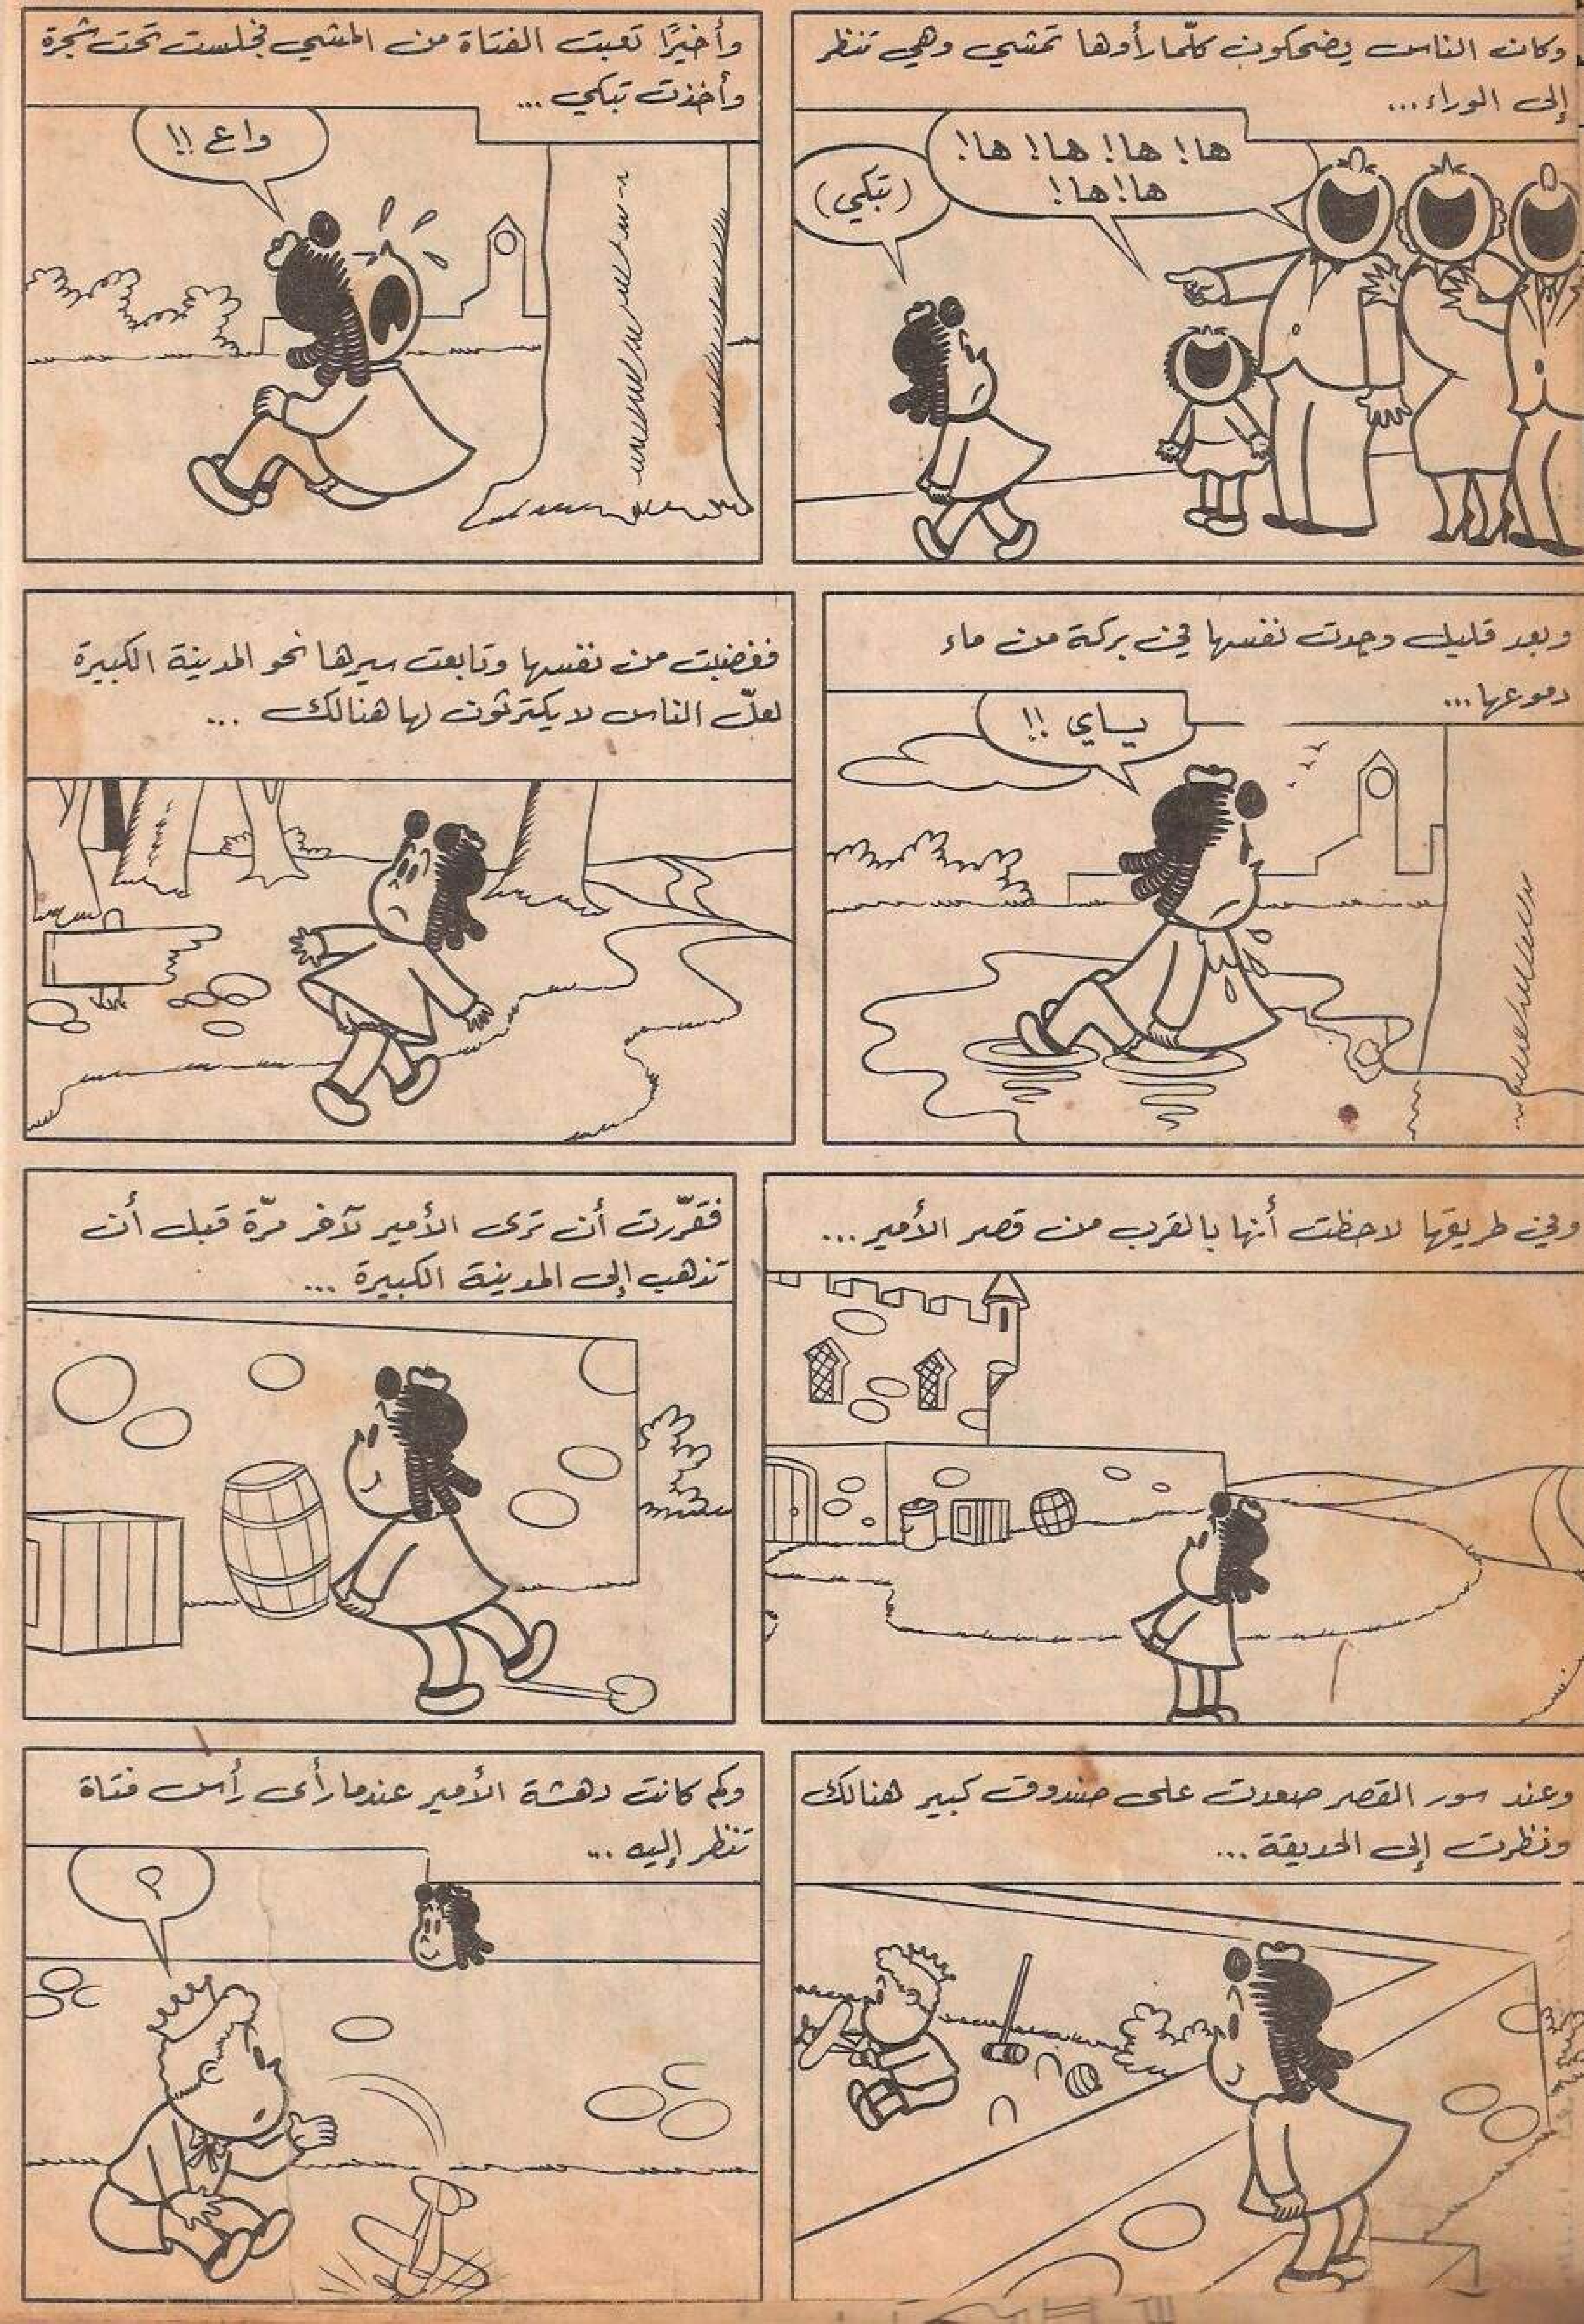 وكان الناس يضحكون كلّما رأوها تمشي وهي تنظر
إلى الوراء...
ها! ها! ها! ها!
ها! ها!
(تبكي)
وأخيرًا تعبت الفتاة من المشي فجلست تحت شجرة
وأخذت تبكي ...
واع !!
وبعد قليل وجدت نفسها في بركة من ماء
دموعها...
ياي !!
فغضبت من نفسها وتابعت سيرها نحو المدينة الكبيرة
لعلّ الناس لا يكترثون لها هنالك ...
وفي طريقها لاحظت أنها بالقرب من قصر الأمير...
فقرّرت أن ترى الأمير لآخر مرّة قبل أن
تذهب إلى المدينة الكبيرة ...
وعند سور القصر صعدت على صندوق كبير هنالك
ونظرت إلى الحديقة ...
وكم كانت دهشة الأمير عندما رأى رأس فتاة
تنظر إليه ...
؟